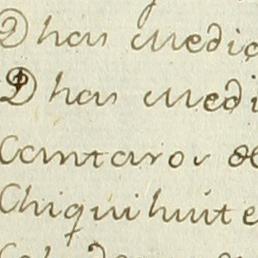 Dhas Medio
Dhas Medi
Cantaros de
Chiquihuite